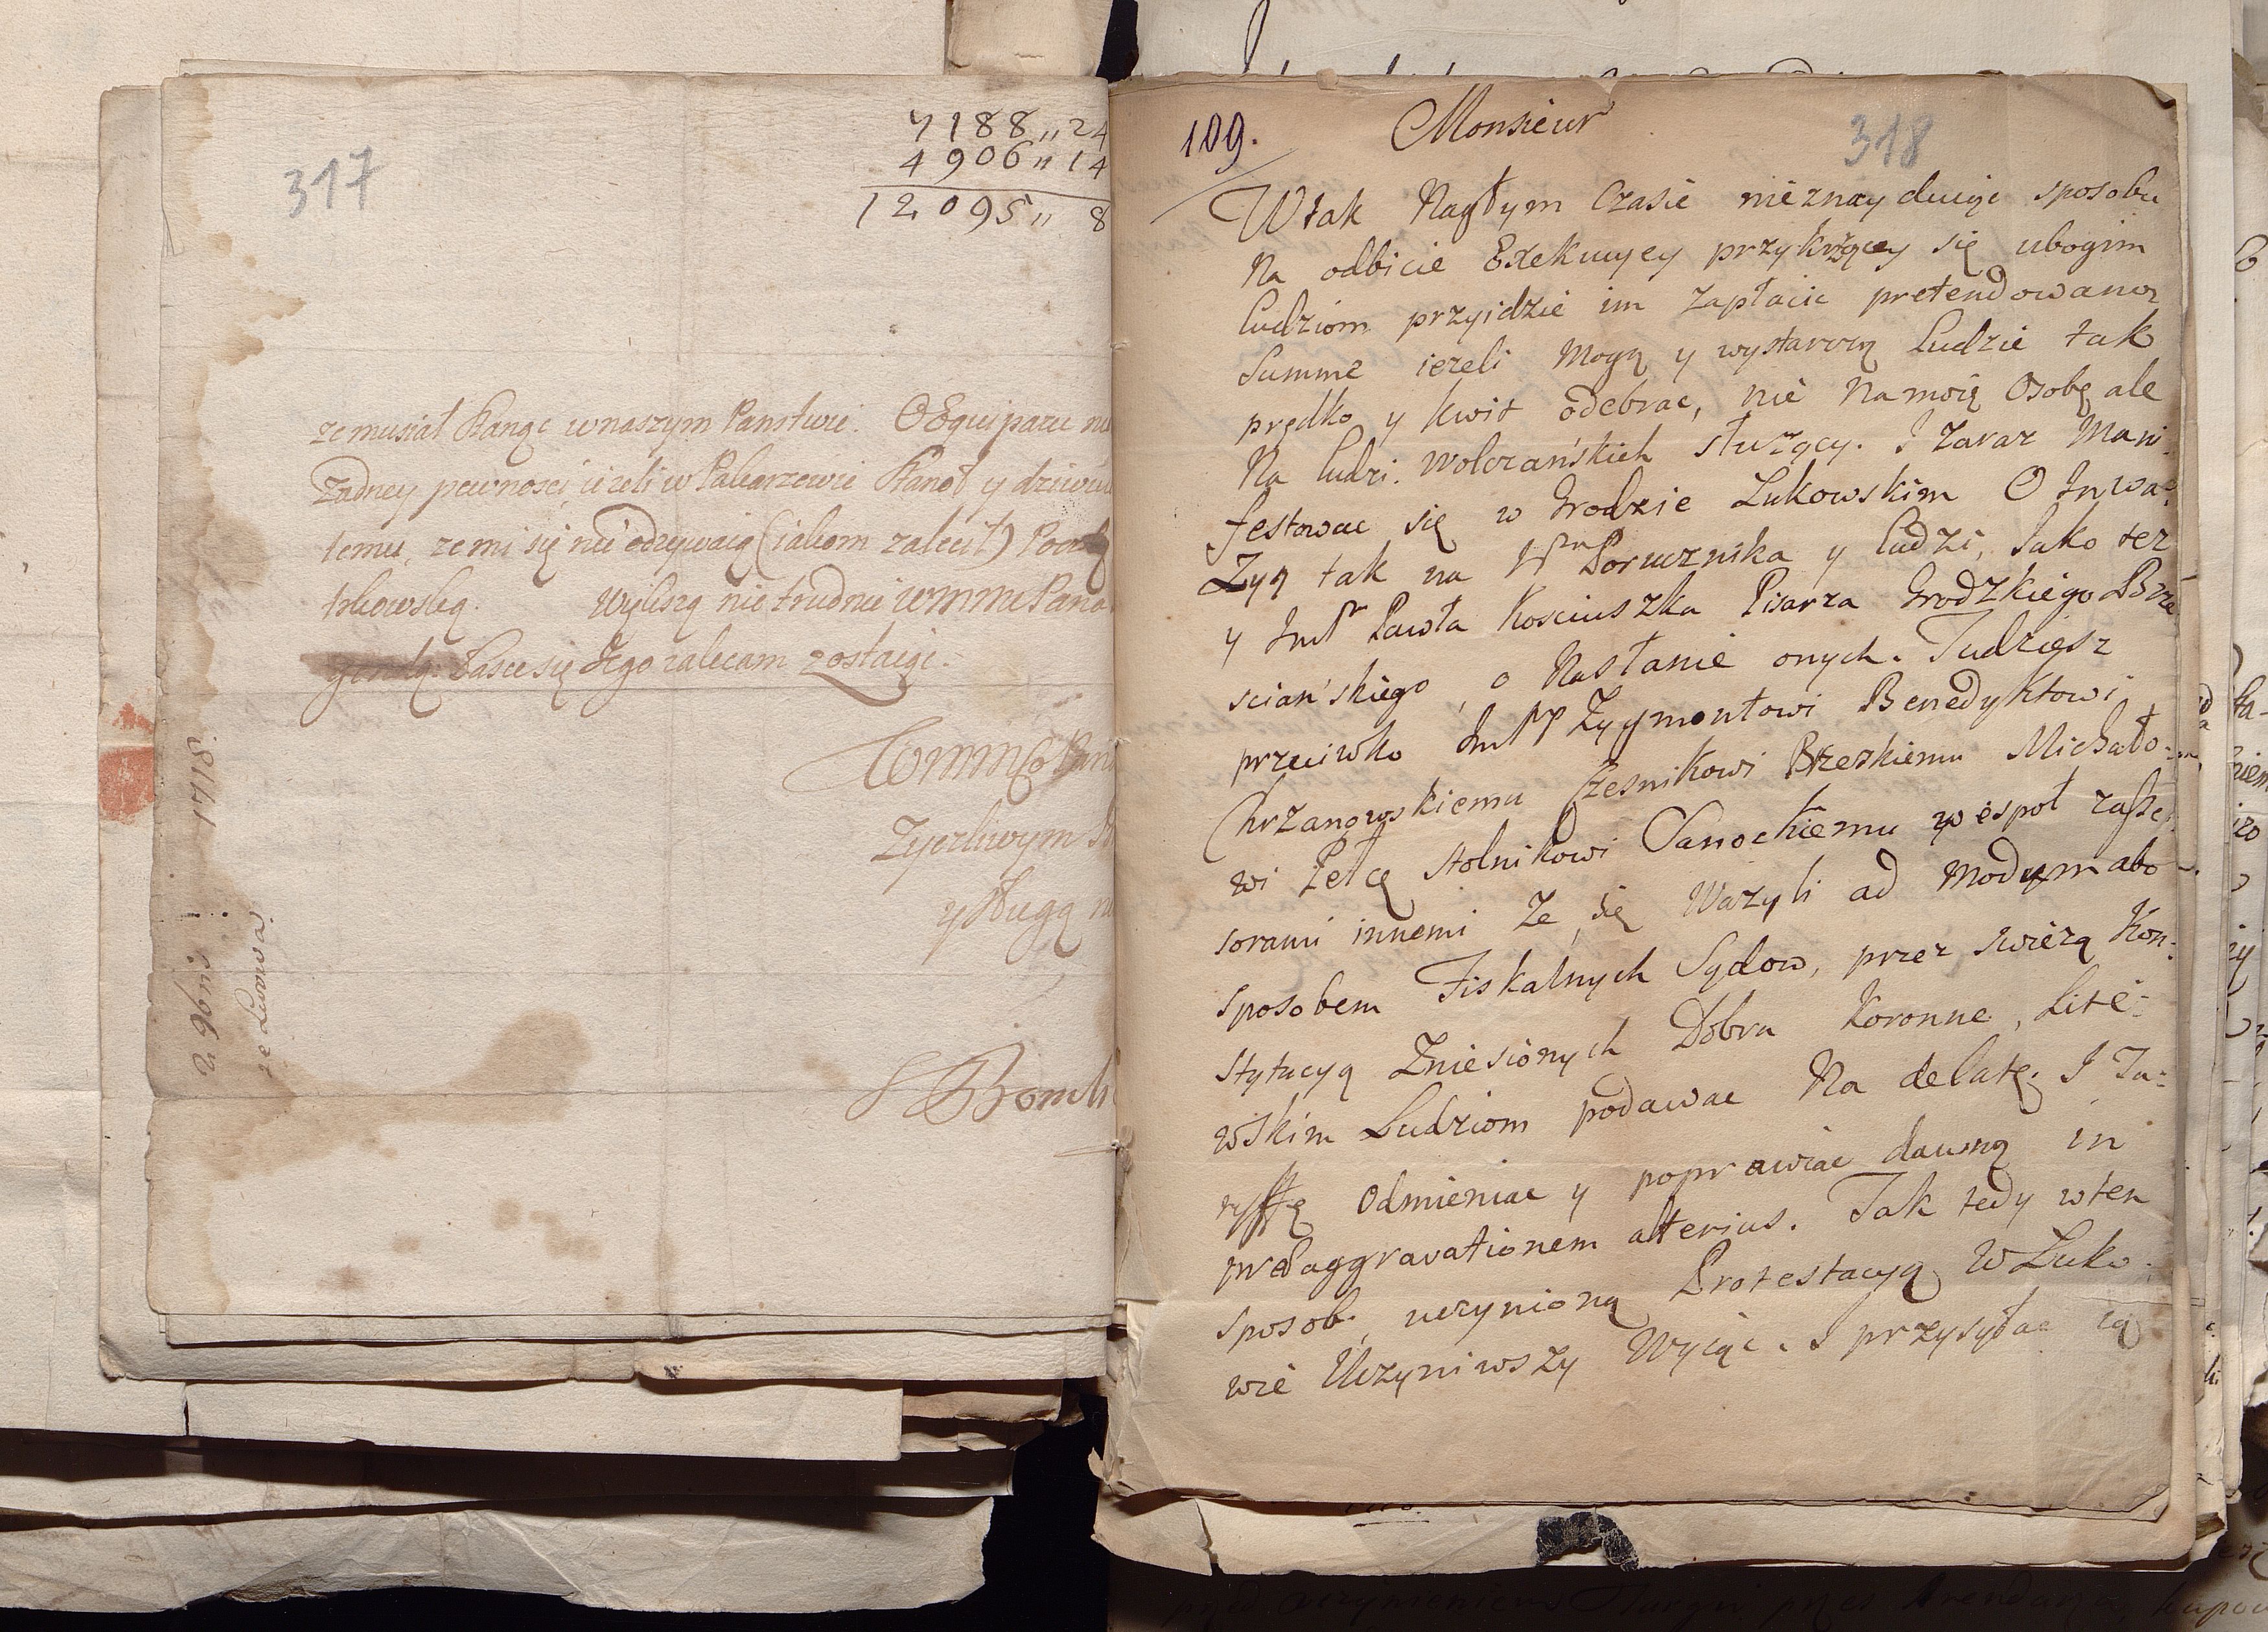 317
7188 „ 24
4906 „ 14
12095 „ 8
ze musiał stange w naszym Panstwie. O Equipazu
Zadney pewnosci ieżeli w Stanoł y
temu, ze mi się nie odzywaią (iakom zalecił)
Wyliszą nie trudnie
Łasce się Jego zalecam zostaigc.
Zyczliwym
y sługą
2 9bris 1718.
ze Lwowa.
109.
Monsieur
318
W tak Nagłym Czasie nieznayduięc sposobu
Na odbicie Exekucyey przykrzącey się ubogim
ludziom przyidzie im zapłacic pretendowaną
Summe iezeli Mogą y wystarczą ludzie tak
prędko y kwit odebrac, nie na moię Osobę ale
Na ludzi Wolczańskich służący. I zaraz Mani-
festowac się w Grodzie Lukowskim O Inwa-
Zyą tak na Porucznika y ludzi, Jako tez
y Pawła Kosciuszka Pisarza Grodzkiego Brze
sciańskiego, o Nasłanie onych. Tudziesz
przeciwko Zygmontowi Benedyktowi
Chrzanowskiemu Czesnikowi Brzeskiemu Michało-
wi Pełcę Stolnikowi Sanockiemu wespoł z asse-
sorami innemi Ze się Wazyli ad modum abo
sposobem Fiskalnych Sądow, przez swiezą Kon-
stytucyą Zniesionych Dobra Koronne, Lite-
wskim Ludziom podawac Na delatę. I Ta-
ryffę Odmieniac y poprawiac dawną in
praeaggravationem alterius. Tak tedy w ten
sposob uczynioną Protestacyą W Luko-
wie Uczyniwszy Wyiąc. I przysyłac ią